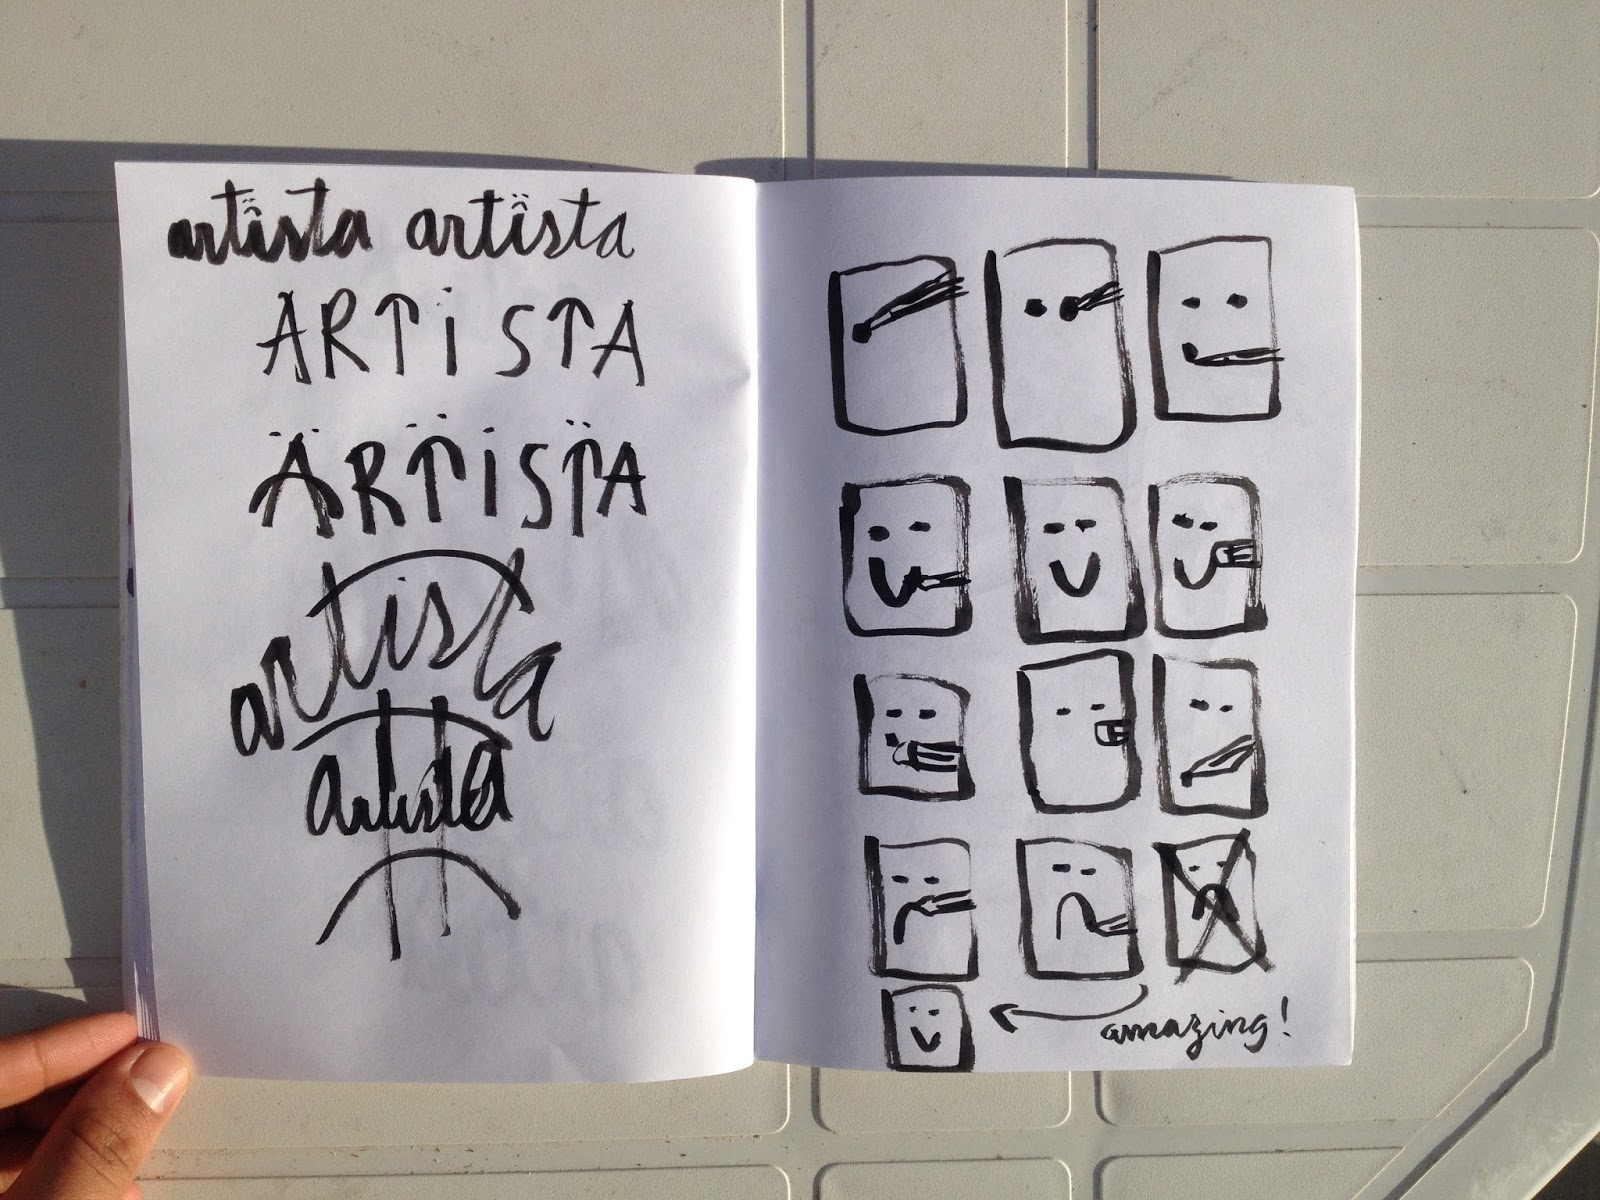 artista artista
ARTiSTA
ARTiSTA
artista
artista
amazing!